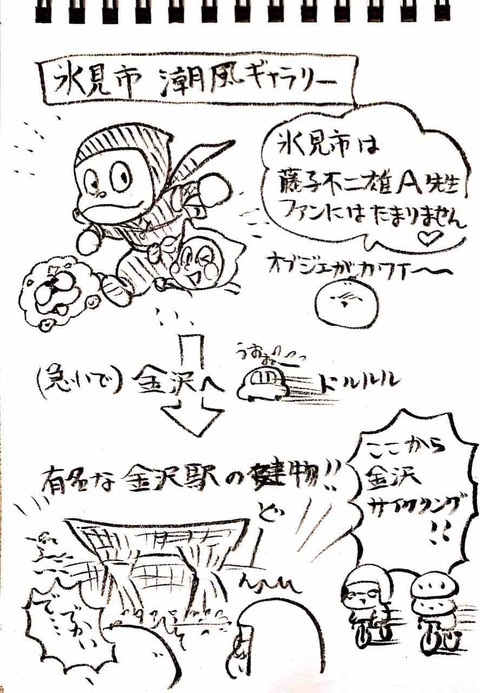 氷見市 潮風ギャラリー
氷見市は
藤子不二雄A先生
ファンにはたまりません♡
オブジェがカワイ〜〜
うおお〜〜
(急いで) 金沢へ
ドルルル
有名な金沢駅の建物!!
ど
ここから
金沢
サイクリング
!!
で、
でかい…